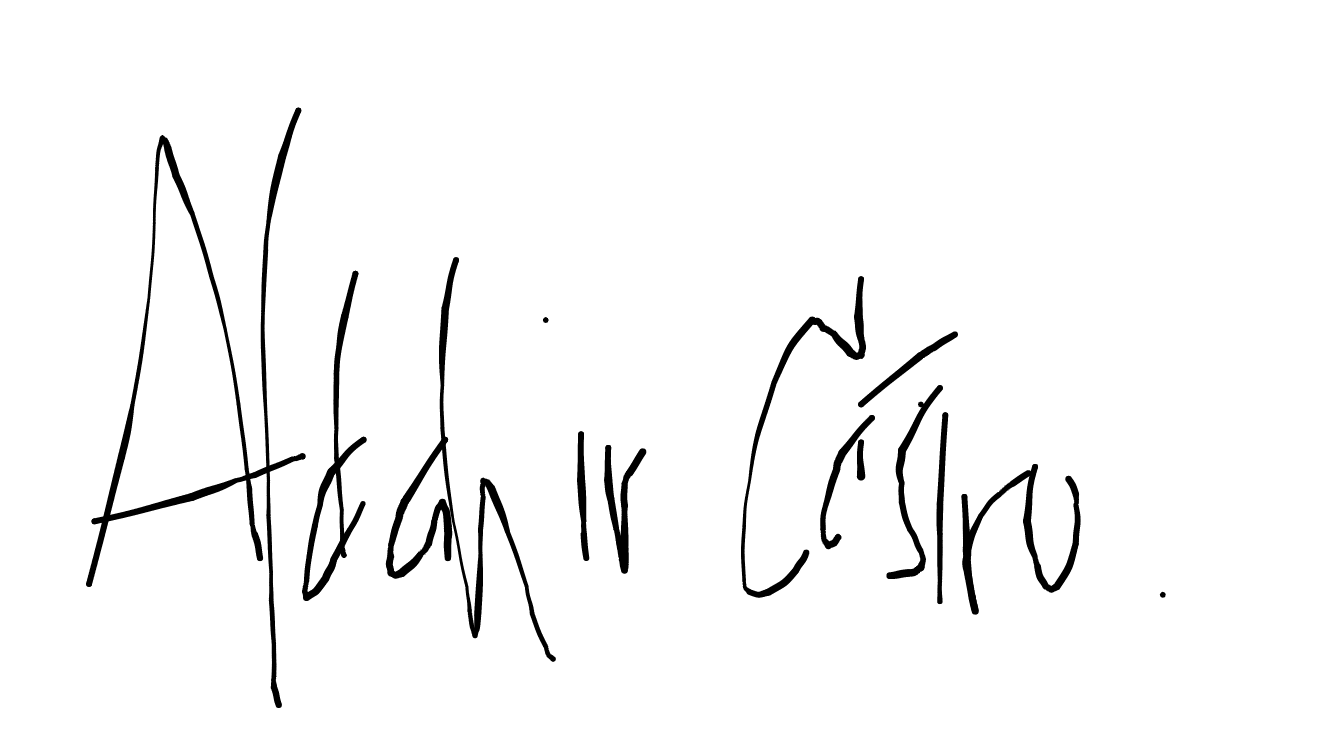 Aldahir Castro.